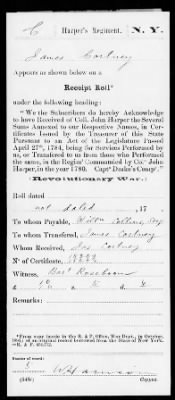 C | Harper's Regiment, | N. Y.
James Cartney
Appears as shown below on a
Receipt Roll*
under the following heading:
"We the Subscribers do hereby Acknowledge
to have Received of Coll. John Harper the Several
Sums Annexed to our Respective Names, in
Certificates Issued by the Treasurer of this State
Persuant to an Act of the Legislature Passed
April 27th, 1784, being for Services Performed by
us, or Transfered to us from those who Performed
the same, in the Regint Commanded by Coll John
Harper, in the year 1780. Capt
(Revolutionary War.)
Roll dated
not dated, 17
To whom Payable,
To whom Transferred, James Cartney
Whom Received, Jas Cartney
No of Certificate,
Witness, Bart Roseboom
£
Remarks:
*From your hosts in the R. & P. Office, War Dep., in October,
R. & P. 436,777.
Number of record:
(546) Copyist.